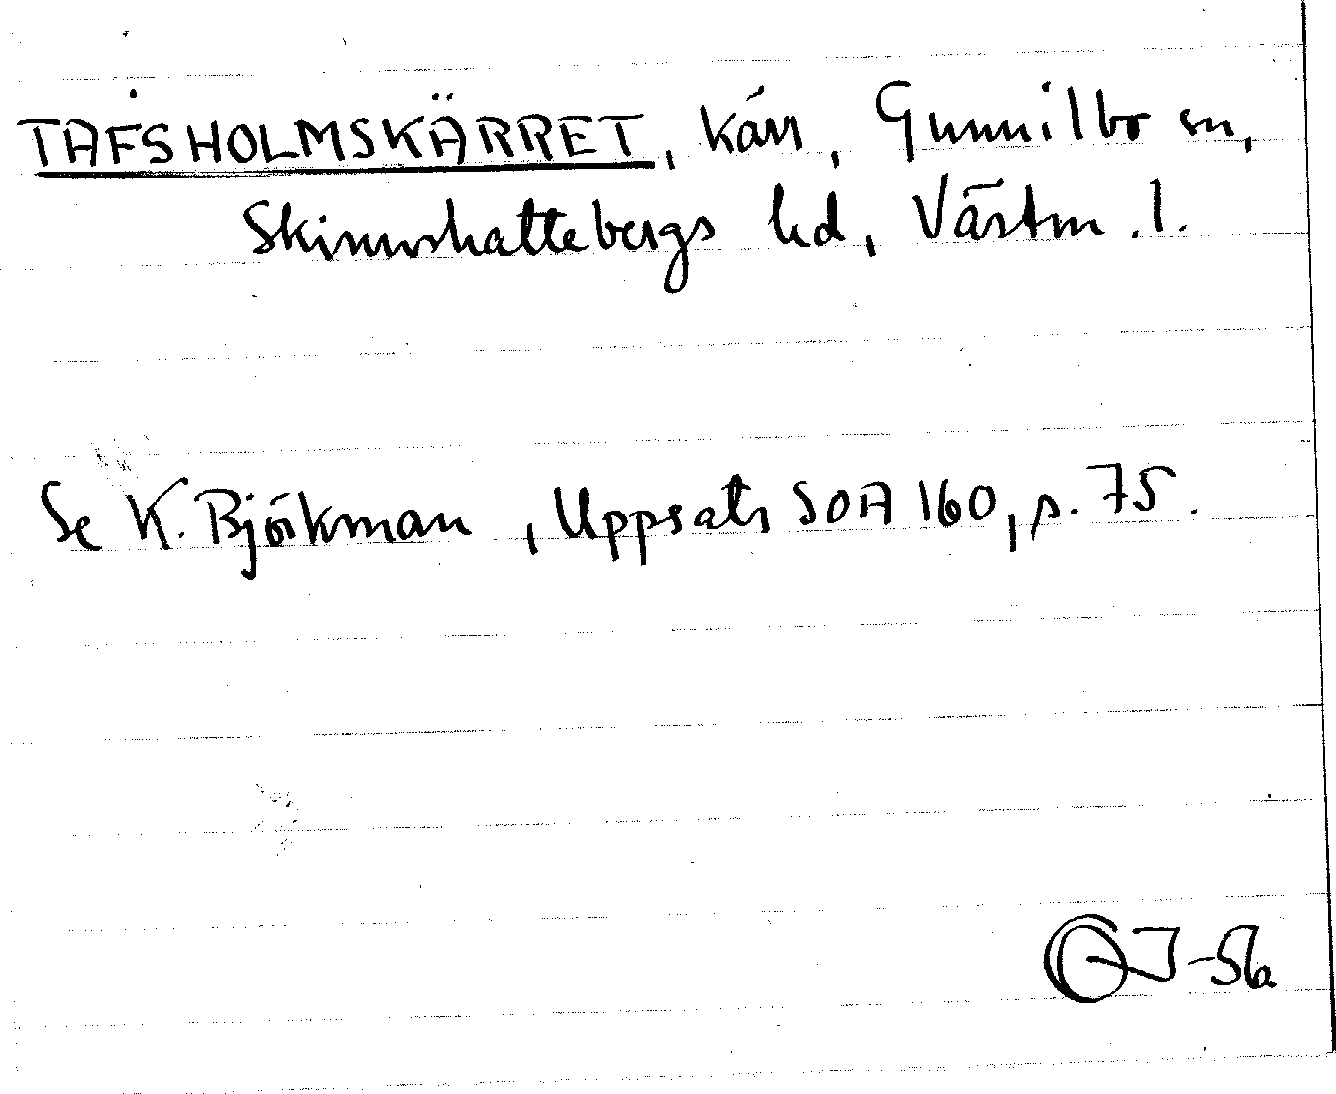 TÅFSHOLMSKÄRRET, kärr, Gunnilbo sn,
Skinnskattebergs hd, Västm. l.
Se K. Björkman, Uppsats SOA 160, p. 75.
-56